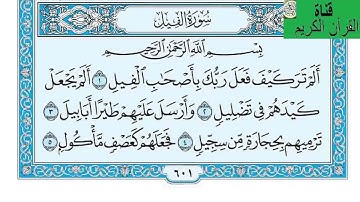 قناة
القرآن الكريم
سُورَةُ الفِيلِ
بِسْمِ اللَّهِ الرَّحْمَٰنِ الرَّحِيمِ
أَلَمْ تَرَ كَيْفَ فَعَلَ رَبُّكَ بِأَصْحَابِ الْفِيلِ ١ أَلَمْ يَجْعَلْ
كَيْدَهُمْ فِي تَضْلِيلٍ ٢ وَأَرْسَلَ عَلَيْهِمْ طَيْرًا أَبَابِيلَ ٣
تَرْمِيهِم بِحِجَارَةٍ مِّن سِجِّيلٍ ٤ فَجَعَلَهُمْ كَعَصْفٍ مَّأْكُولٍ ٥
٦٠١